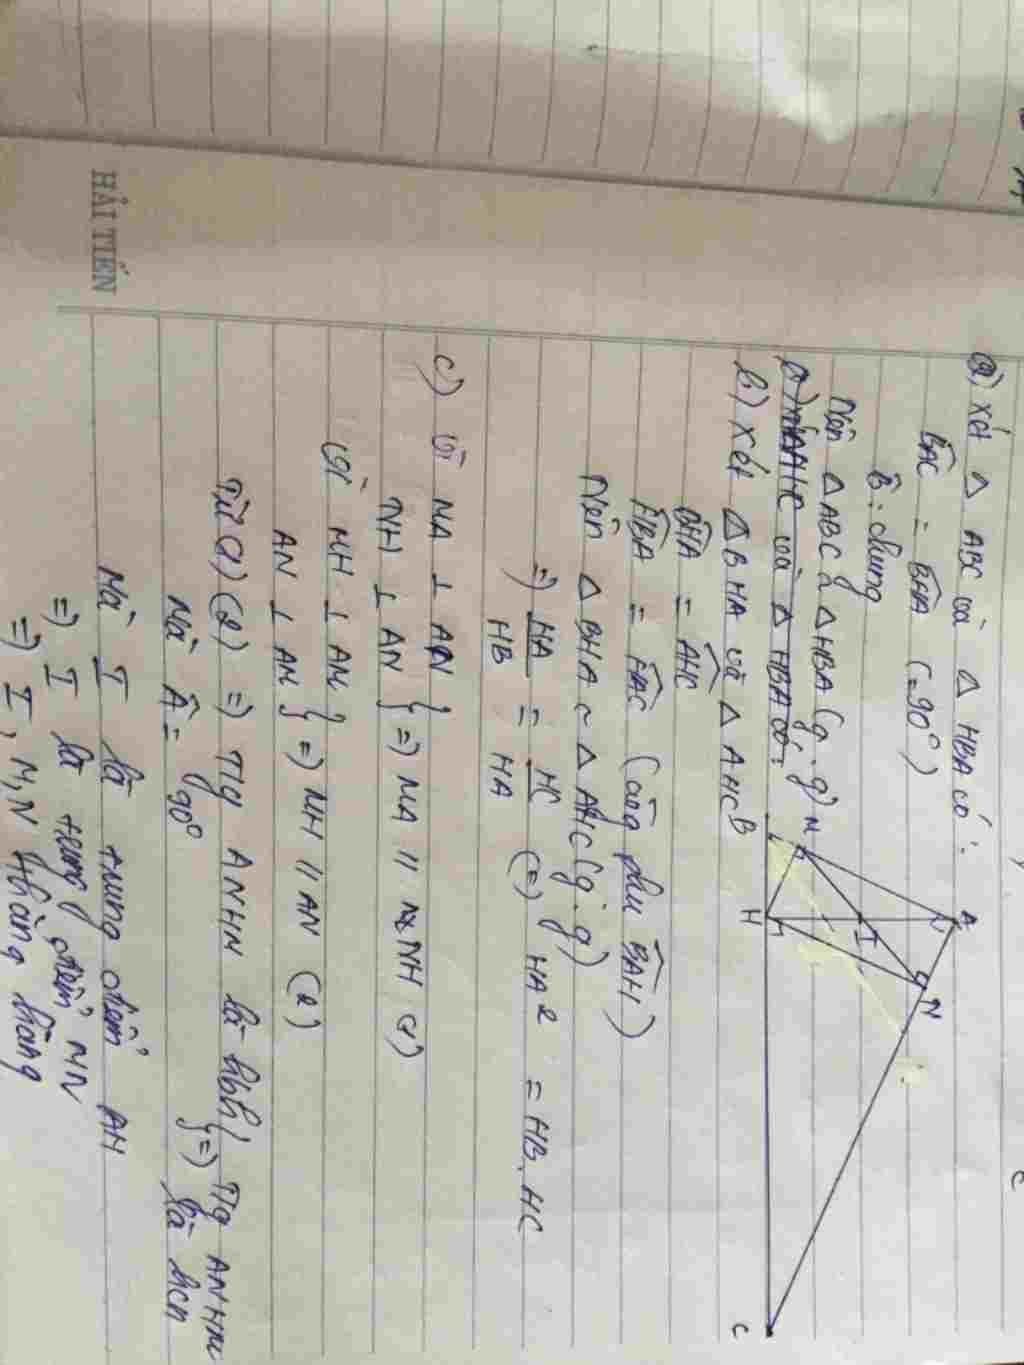 HẢI TIẾN
a) Xét △ ABC và △ HBA có :
BAC = BHA (=90°)
B : chung
Nên △ ABC ~ △ HBA (g.g)
b) Xét △ BHA và △ AHC
BHA = AHC
HBA = HAC (cùng phụ BAH)
Nên △ BHA ~ △ AHC (g.g)
=) HA/HB = HC/HA (=) HA2 = HB.HC
c) Vì MA ⊥ AN
NH ⊥ AN } =) MA // NH (1)
Vì MH ⊥ AM
AN ⊥ AM } =) MH // AN (2)
Từ (1) (2) =) Tứg ANHM là hbh
Mà Â = 90° } =) Tg ANHM là hcn
Mà I là trung điểm AH
=) I là trung điểm MN
=) I, M, N thẳng hàng
A
M
N
I
B
H
C